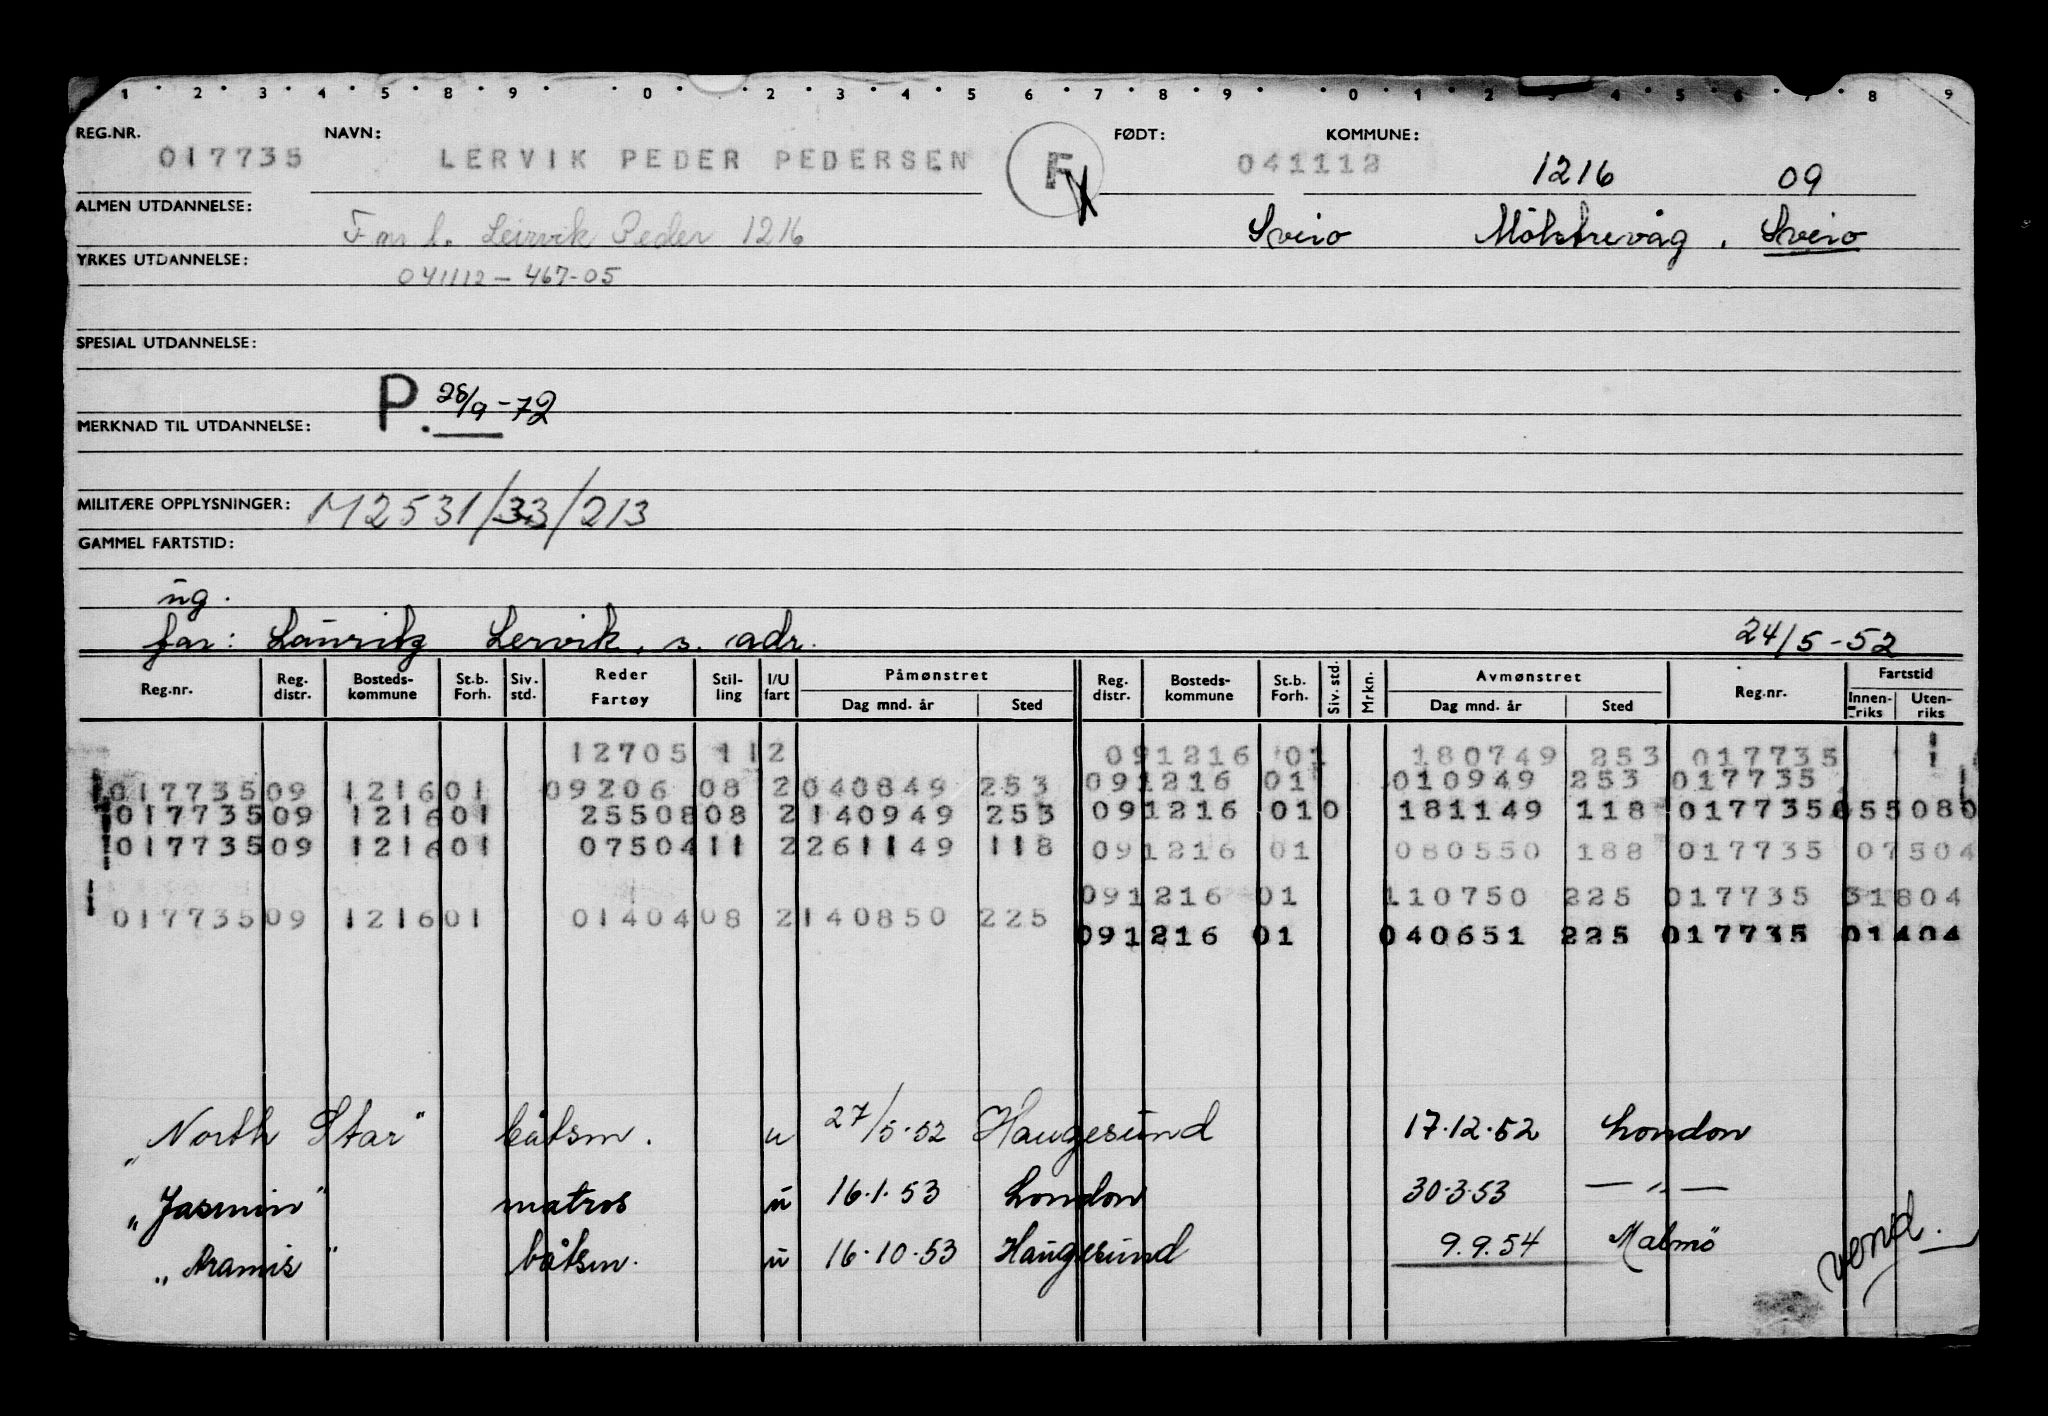 1 2 3 4 5 8 9 0 2 3 4 5 6 7 8 9 0 1 2 3 4 5 6 7 8 9
REG.NR. NAVN: FØDT: KOMMUNE:
017735 LERVIK PEDER PEDERSEN F 041112 1216 09
ALMEN UTDANNELSE:
Leirvik Peder 1216 Sveio Mölstrevåg, Sveio
YRKES UTDANNELSE:
041112 - 467-05
SPESIAL UTDANNELSE:
P. 28/9-72
MERKNAD TIL UTDANNELSE:
MILITÆRE OPPLYSNINGER: M2531/33/213
GAMMEL FARTSTID:
ug.
far: Lauritz Lervik, s. adr. 24/5-52
Reg.nr. Reg. distr. Bosteds- kommune St.b. Forh. Siv. std. Reder Fartøy Stil- ling I/U fart Påmønstret Dag mnd. år Sted Reg. distr. Bosteds- kommune St.b. Forh. Siv. std. Mrkn. Avmønstret Dag mnd. år Sted Reg.nr. Fartstid Innen- riks Uten- riks
12705 112 091216 01 180749 253 017735
017735 09 1216 01 09206 08 2 040849 253 091216 01 010949 253 017735
017735 09 1216 01 25508 08 2 140949 253 091216 010 181149 118 017735 055080
017735 09 1216 01 07504 11 2 261149 118 091216 01 080550 188 017735 07504
091216 01 110750 225 017735 31804
017735 09 1216 01 01404 08 2 140850 225
091216 01 040651 225 017735 01404
„North Star" båtsm. u 27/5-52 Haugesund 17.12.52 London
„Jasmin" matros u 16.1.53 London 30.3.53 — „ —
„Aramis" båtsm. u 16.10.53 Haugesund 9.9.54 Malmö
vend.